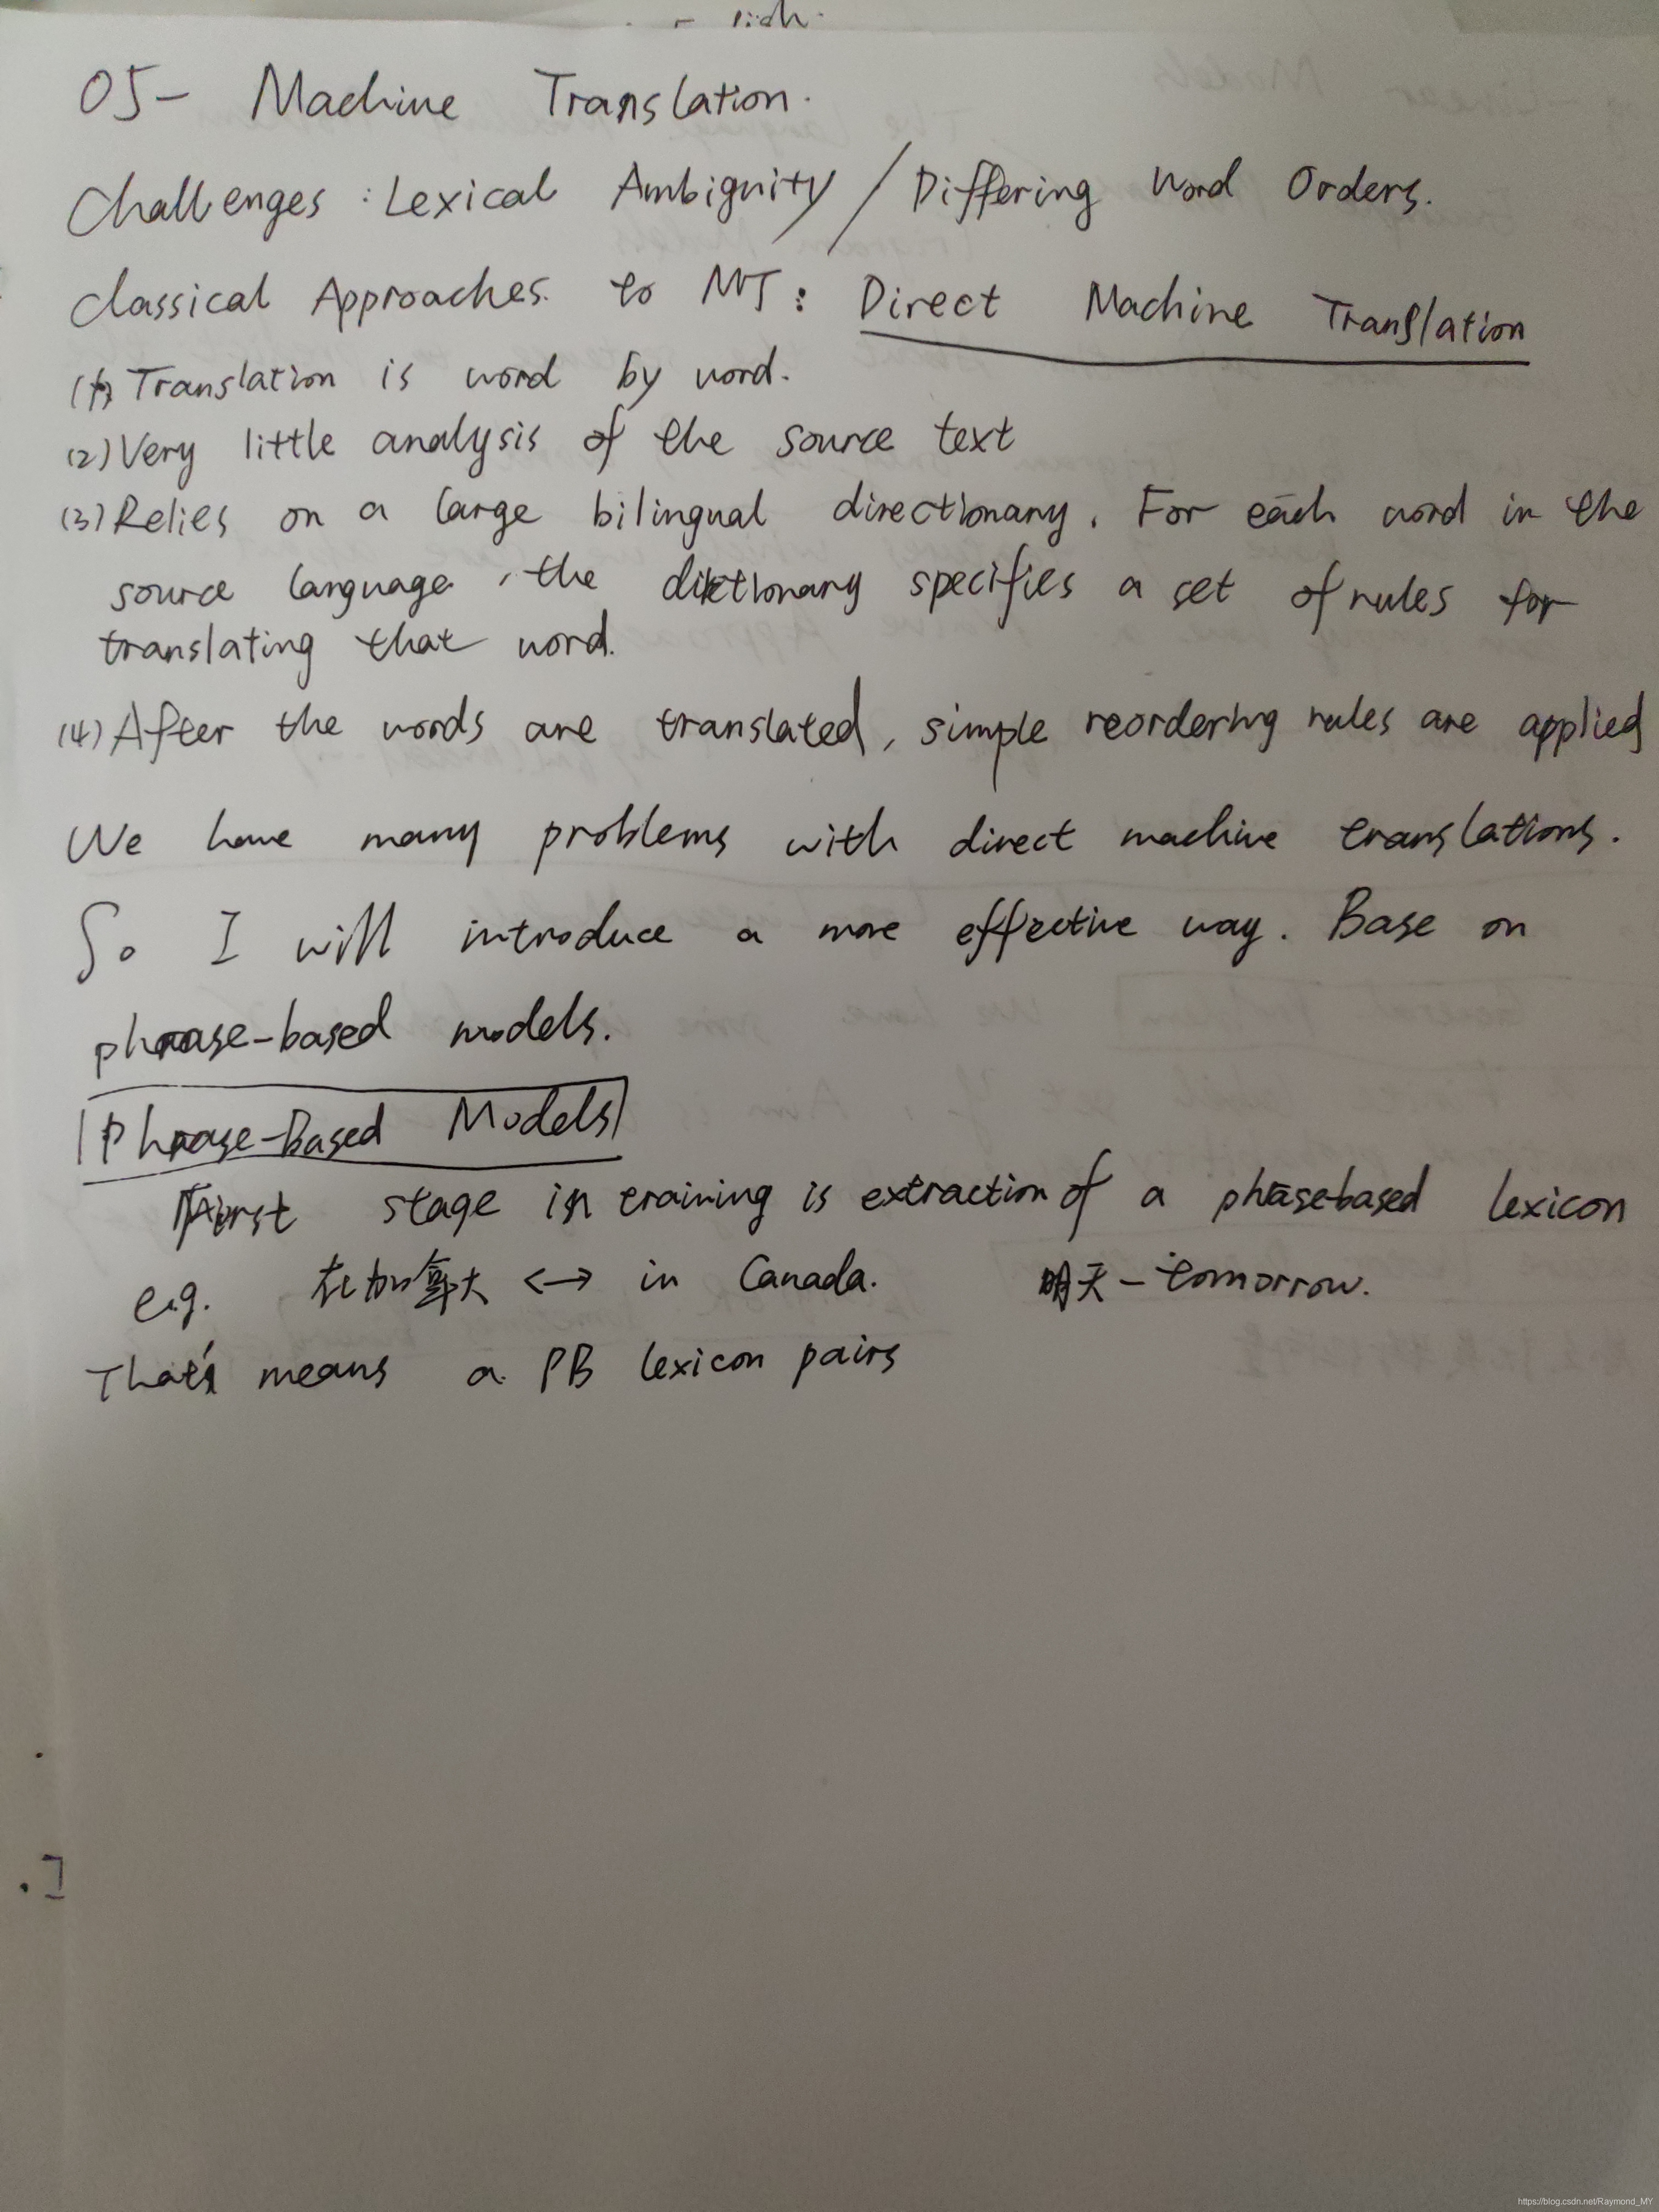 05- Machine Translation.
Challenges: Lexical Ambiguity / Differing Word Orders.
Classical Approaches to MT: Direct Machine Translation
(1) Translation is word by word.
(2) Very little analysis of the source text
(3) Relies on a large bilingual directionary. For each word in the
source language, the dictionary specifies a set of rules for
translating that word.
(4) After the words are translated, simple reordering rules are applied
We have many problems with direct machine translations.
So I will introduce a more effective way. Base on
phrase-based models.
Phrase-Based Models
First stage in training is extraction of a phrase-based lexicon
e.g. 在加拿大 <-> in Canada. 明天 - tomorrow.
That's means a PB lexicon pairs
https://blog.csdn.net/Raymond_MY